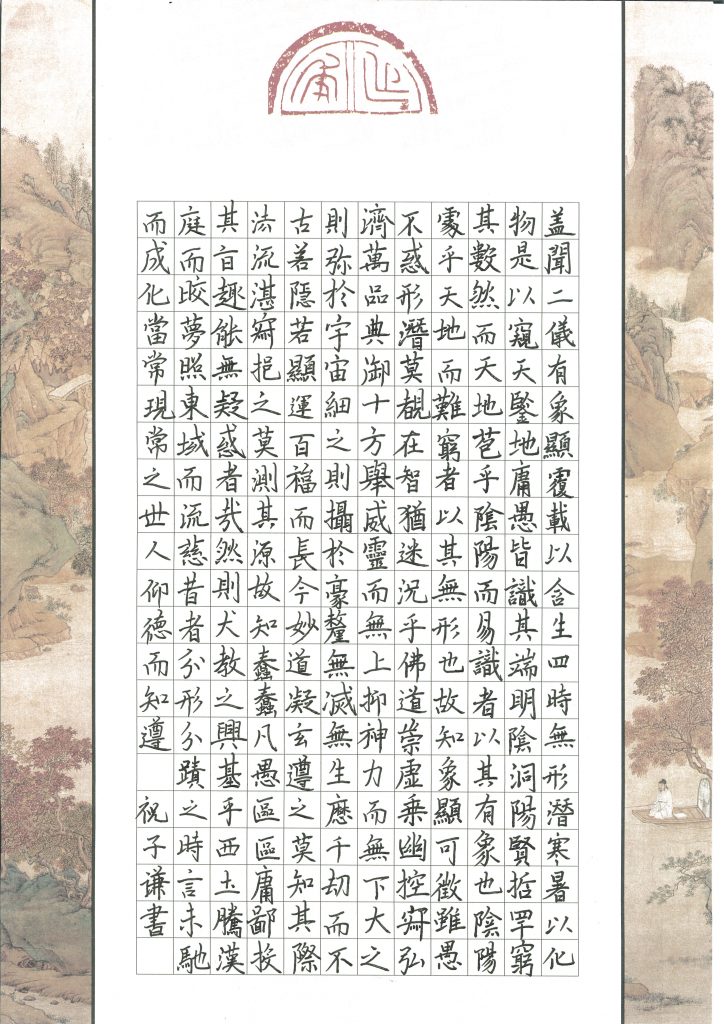 盖聞二儀有象顯覆載以含生四時無形潛寒暑以化
物是以窺天鑒地庸愚皆識其端明陰洞陽賢哲罕窮
其數然而天地苞乎陰陽而易識者以其有象也陰陽
處乎天地而難窮者以其無形也故知象顯可徵雖愚
不惑形潛莫覩在智猶迷況乎佛道崇虛乘幽控寂弘
濟萬品典御十方舉威靈而無上抑神力而無下大之
則弥於宇宙細之則攝於豪釐無滅無生歷千劫而不
古若隱若顯運百福而長今妙道凝玄遵之莫知其際
法流湛寂挹之莫測其源故知蠢蠢凡愚區區庸鄙投
其旨趣能無疑惑者哉然則大教之興基乎西土騰漢
庭而皎夢照東域而流慈昔者分形分蹟之時言未馳
而成化當常現常之世人仰德而知遵 祝子谦書